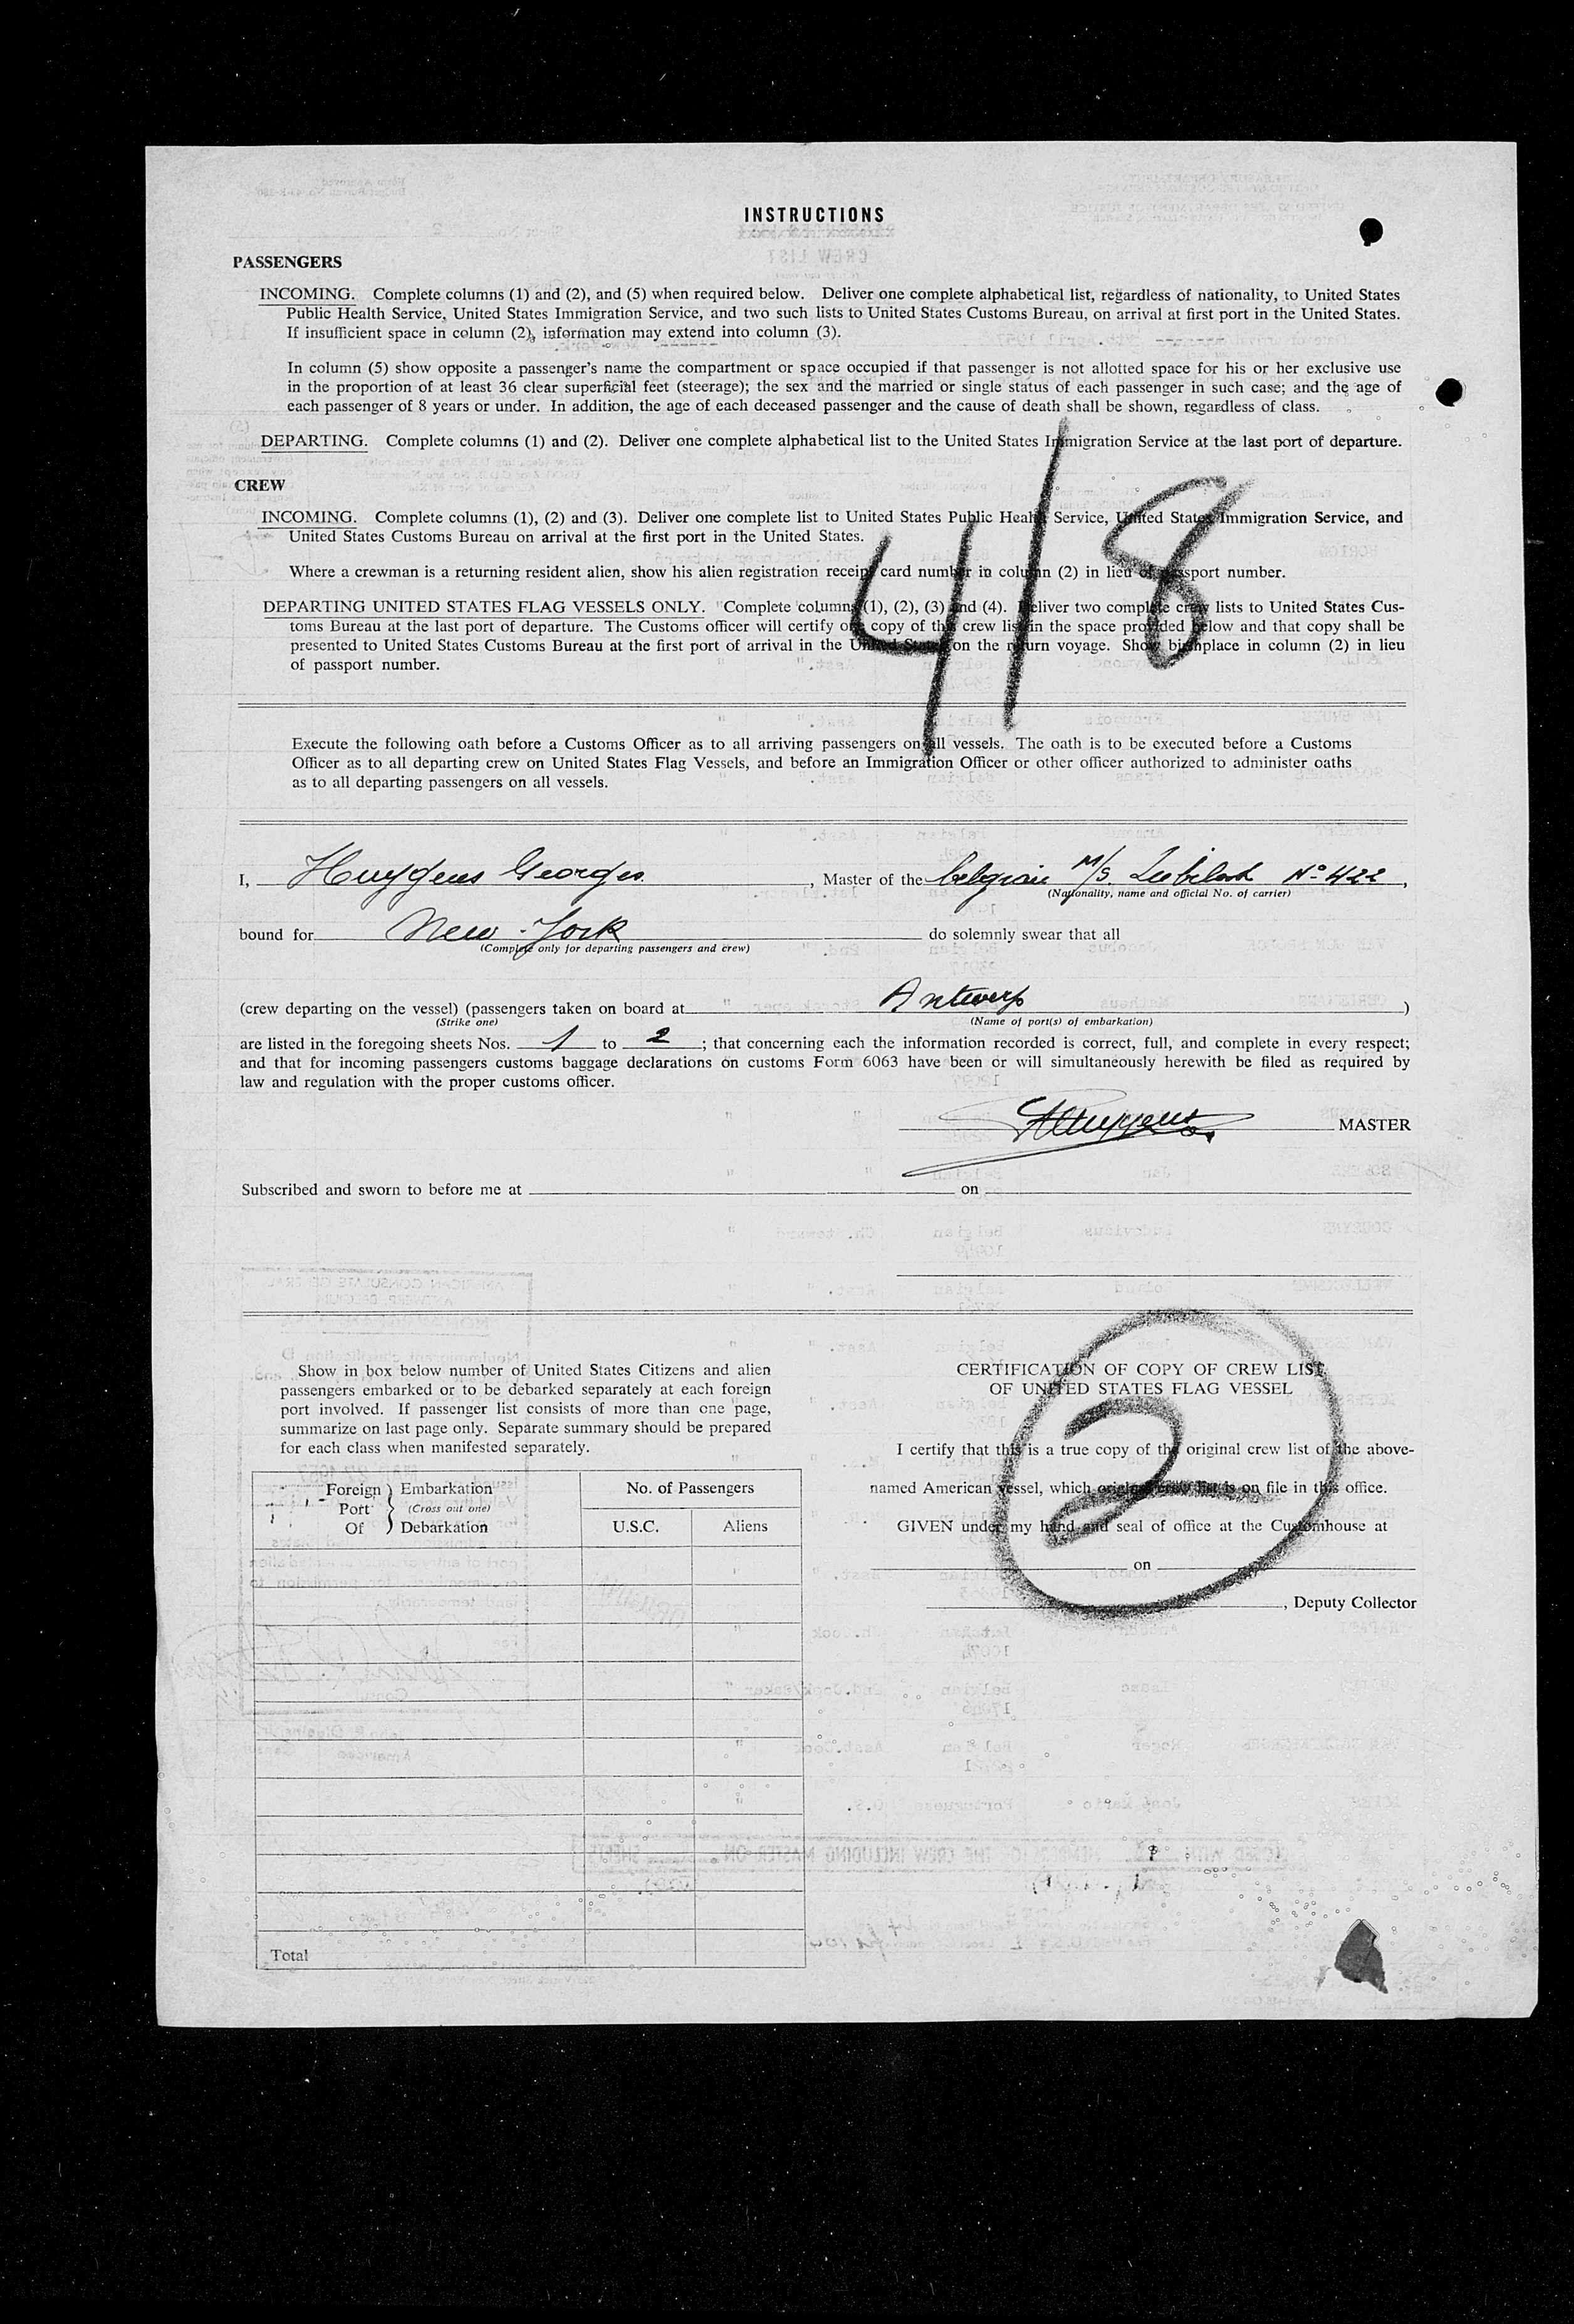 INSTRUCTIONS
PASSENGERS
INCOMING. Complete columns (1) and (2), and (5) when required below. Deliver one complete alphabetical list, regardless of nationality, to United States
Public Health Service, United States Immigration Service, and two such lists to United States Customs Bureau, on arrival at first port in the United States.
If insufficient space in column (2), information may extend into column (3).
In column (5) show opposite a passenger's name the compartment or space occupied if that passenger is not allotted space for his or her exclusive use
in the proportion of at least 36 clear superficial feet (steerage); the sex and the married or single status of each passenger in such case; and the age of
each passenger of 8 years or under. In addition, the age of each deceased passenger and the cause of death shall be shown, regardless of class.
DEPARTING. Complete columns (1) and (2). Deliver one complete alphabetical list to the United States Immigration Service at the last port of departure.
418
CREW
INCOMING. Complete columns (1), (2) and (3). Deliver one complete list to United States Public Health Service, United States Immigration Service, and
United States Customs Bureau on arrival at the first port in the United States.
Where a crewman is a returning resident alien, show his alien registration receipt card number in column (2) in lieu of passport number.
DEPARTING UNITED STATES FLAG VESSELS ONLY. Complete columns (1), (2), (3) and (4). Deliver two complete crew lists to United States Cus-
toms Bureau at the last port of departure. The Customs officer will certify one copy of the crew list in the space provided below and that copy shall be
presented to United States Customs Bureau at the first port of arrival in the United States on the return voyage. Show birthplace in column (2) in lieu
of passport number.
Execute the following oath before a Customs Officer as to all arriving passengers on all vessels. The oath is to be executed before a Customs
Officer as to all departing crew on United States Flag Vessels, and before an Immigration Officer or other officer authorized to administer oaths
as to all departing passengers on all vessels.
I, Huygens Georges, Master of the belgian M/S. Lubilash No 422,
(Nationality, name and official No. of carrier)
bound for New-York do solemnly swear that all
(Complete only for departing passengers and crew)
(crew departing on the vessel) (passengers taken on board at Antwerp)
(Strike one) (Name of port(s) of embarkation)
are listed in the foregoing sheets Nos. 1 to 2; that concerning each the information recorded is correct, full, and complete in every respect;
and that for incoming passengers customs baggage declarations on customs Form 6063 have been or will simultaneously herewith be filed as required by
law and regulation with the proper customs officer.
Huygens MASTER
Subscribed and sworn to before me at on
Show in box below number of United States Citizens and alien
passengers embarked or to be debarked separately at each foreign
port involved. If passenger list consists of more than one page,
summarize on last page only. Separate summary should be prepared
for each class when manifested separately.
Foreign Port Of } Embarkation (Cross out one) Debarkation
No. of Passengers
U.S.C. Aliens
Total
CERTIFICATION OF COPY OF CREW LIST
OF UNITED STATES FLAG VESSEL
2
I certify that this is a true copy of the original crew list of the above-
named American vessel, which original crew list is on file in this office.
GIVEN under my hand and seal of office at the Customhouse at
on
, Deputy Collector